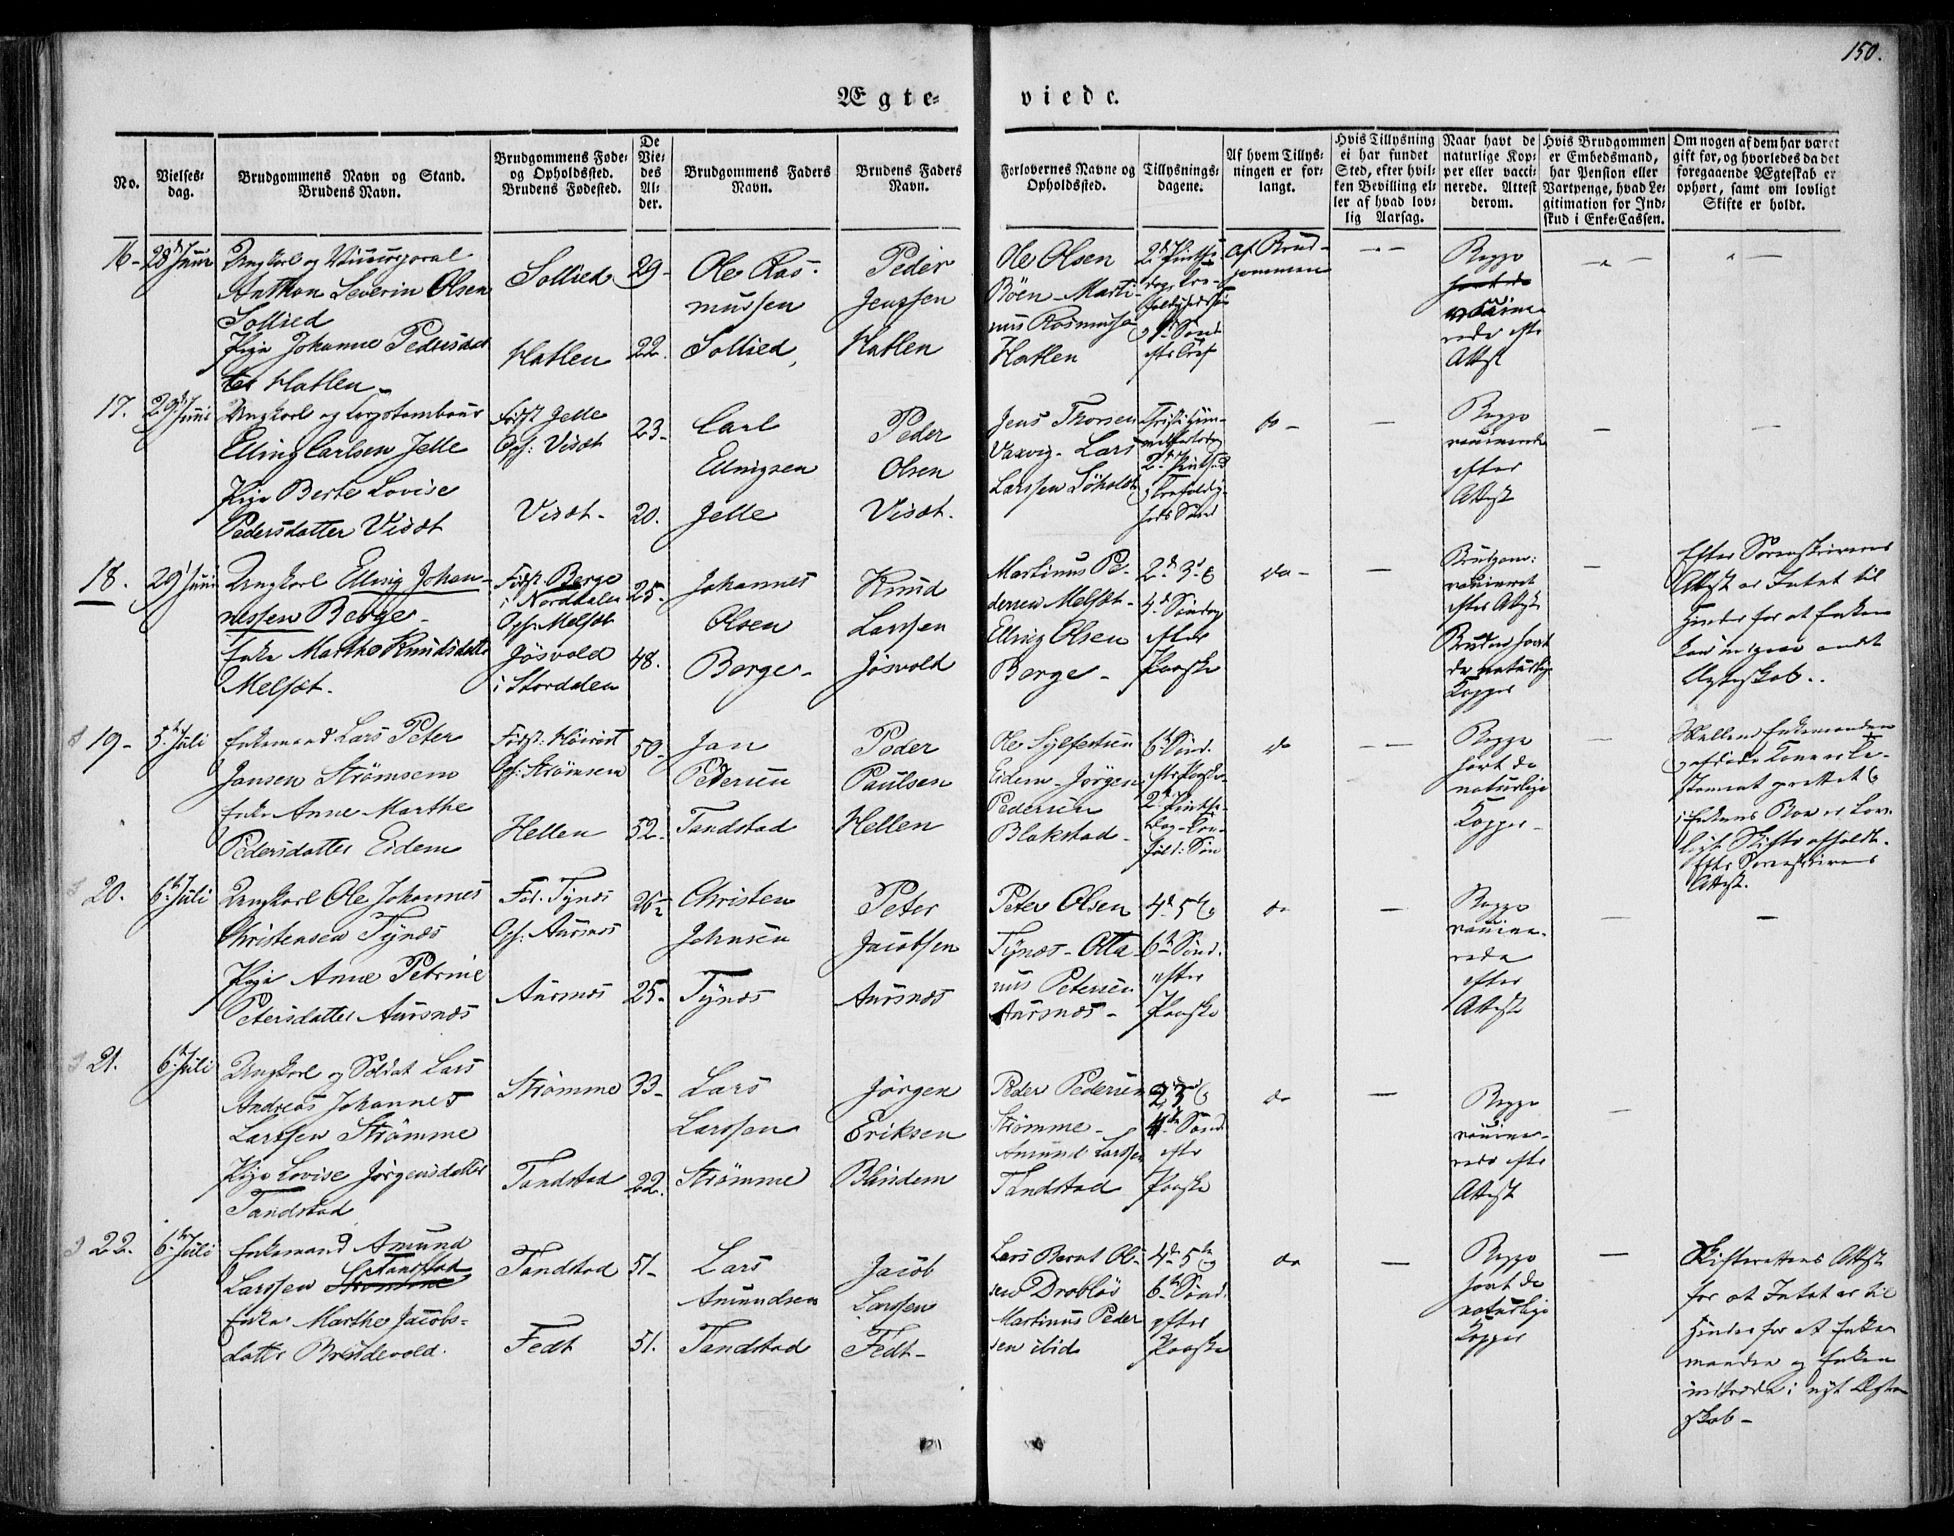 150.
Ægte-
viede.
No.
Vielses-
dag.
Brudgommens Navn og Stand.
Brudens Navn.
Brudgommens Føde-
og Opholdsted.
Brudens Fødested.
De
Vie-
des
Al-
der.
Brudgommens Faders
Navn.
Brudens Faders
Navn.
Forlovernes Navne og
Opholdsted.
Tillysnings-
dagene.
Af hvem Tillys-
ningen er for-
langt.
Hvis Tillysning
ei har fundet
Sted, efter hvil-
ken Bevilling el-
ler af hvad lov-
lig Aarsag.
Naar havt de
naturlige Kop-
per eller vacci-
nerede. Attest
derom.
Hvis Brudgommen
er Embedsmand,
har Pension eller
Vartpenge, hvad Le-
gitimation for Ind-
skud i Enke-Cassen.
Om nogen af dem har været
gift før, og hvorledes da det
foregaaende Ægteskab er
ophørt, samt om lovligt
Skifte er holdt.
16-
28de Juni
Ungkarl og
Anthon Severin Olsen
Sollied
Pige Johanne Pedersdat
ter Hatlen
Sollied
Hatlen
29-
22.
Ole Ras-
mussen
Sollied,
Peder
Jenssen
Hatlen
Ole Olsen
Böen - Marti-
nus Rasmussen
Hatlen
af Brud-
gommen
Begge
havt de
vaccine
rede efter
Attest
17.
29de Juni
Ungkarl og
Elling Carlsen Jelle
Pige Berte Lovise
Pedersdatter Viset
Födst Jelle
Oph: Viset
Viset-
23-
20.
Carl
Ellingsen
Jelle
Peder
Olsen
Viset.
Jens Thorsen
Vaxvig- Lars
Larssen Söholt
Christi Him-
melfartsdag
do-
Begge
vaccinerede
efter
Attest
18.
29 Juni
Ungkarl Elling Johan-
nessen Berge-
Enke Marthe Knudsdatter
Melset.
Födst Berge
i Norddalen
Oph: Melset
Jösvold
i Stordalen
25-
48.
Johannes
Olsen
Berge-
Knud
Larssen
Jösvold
Martinus Pe-
dersen Melset-
Elling Olsen
Berge-
2d 3d &
4d Söndag
efter
Paaske
do-
Brudgom:
vaccineret
efter Attest
Bruden havt
de naturlige
Kopper
Efter Sorenskriverens
Attest er Intet til
Hinder for at Enken
kan indgaae andet
Ægteskab..
19-
5te Juli
Enkemand Lars Peter
Jansen Strömsem
Enke Anne Marthe
Pedersdatter Eidem
Oph: Strömsem
Hellen
50-
52-
Jan
Pedersen
Tandstad
Peder
Paulsen
Hellen
Ole Sylfestsen
Eidem- Jörgen
Pedersen
Blakstad-
6te Sönd.
efter Paaske-
do
Begge
havt de
naturlige
Kopper-
Mellem Enkemanden
i Enkens Boe er lov-
ligt Skifte afholdt.
Efter Sorenskriverens
Attest.
20.
6te Juli
Ungkarl Ole Johannes
Christensen Tynes
Pige Anne Petrine
Petersdatter Aursnes
Föd. Tynes
Oph: Aursnes
Aursnes
26-
25-
Christen
Johnsen
Tynes
Peter
Jacobsen
Aursnes
Peter Olsen
Tynes- Otta-
nus Petersen
Aursnes-
4de 5te &
6te Sönd.
efter
Paaske
do
Begge
vaccine-
rede
efter
Attest
21.
6te Juli
Ungkarl og Soldat Lars
Andreas Johannes
Larssen Strömme
Pige Lovise Jörgensdatter
Tandstad
Strömme
Tandstad
33-
22.
Lars
Larssen
Strömme
Jörgen
Eriksen
Blindem
Peder Pedersen
Strömme-
Amund Larssen
Tandstad
2d 3d &
4de Sönd.
efter
Paaske
do
Begge
vaccine-
rede efter
Attest
22.
6te Juli
Enkemand Amund
Tandstad
Larssen Strömme
Enke Marthe Jacobs-
datter Brüdevold.
Tandstad
Fedt
51-
51.
Lars
Amundsen
Tandstad
Jacob
Larssen
Fedt-
Lars Bernt Ol-
sen Droblös
Martinus Peder
sen ibid
4de 5te &
6te Sönd.
efter
Paaske
do
Begge
havt de
naturlige
Kopper
Skifterettens Attest
for at Intet er til
Hinder for at Enke-
manden og Enken
indtræde i nyt Ægte-
skab-